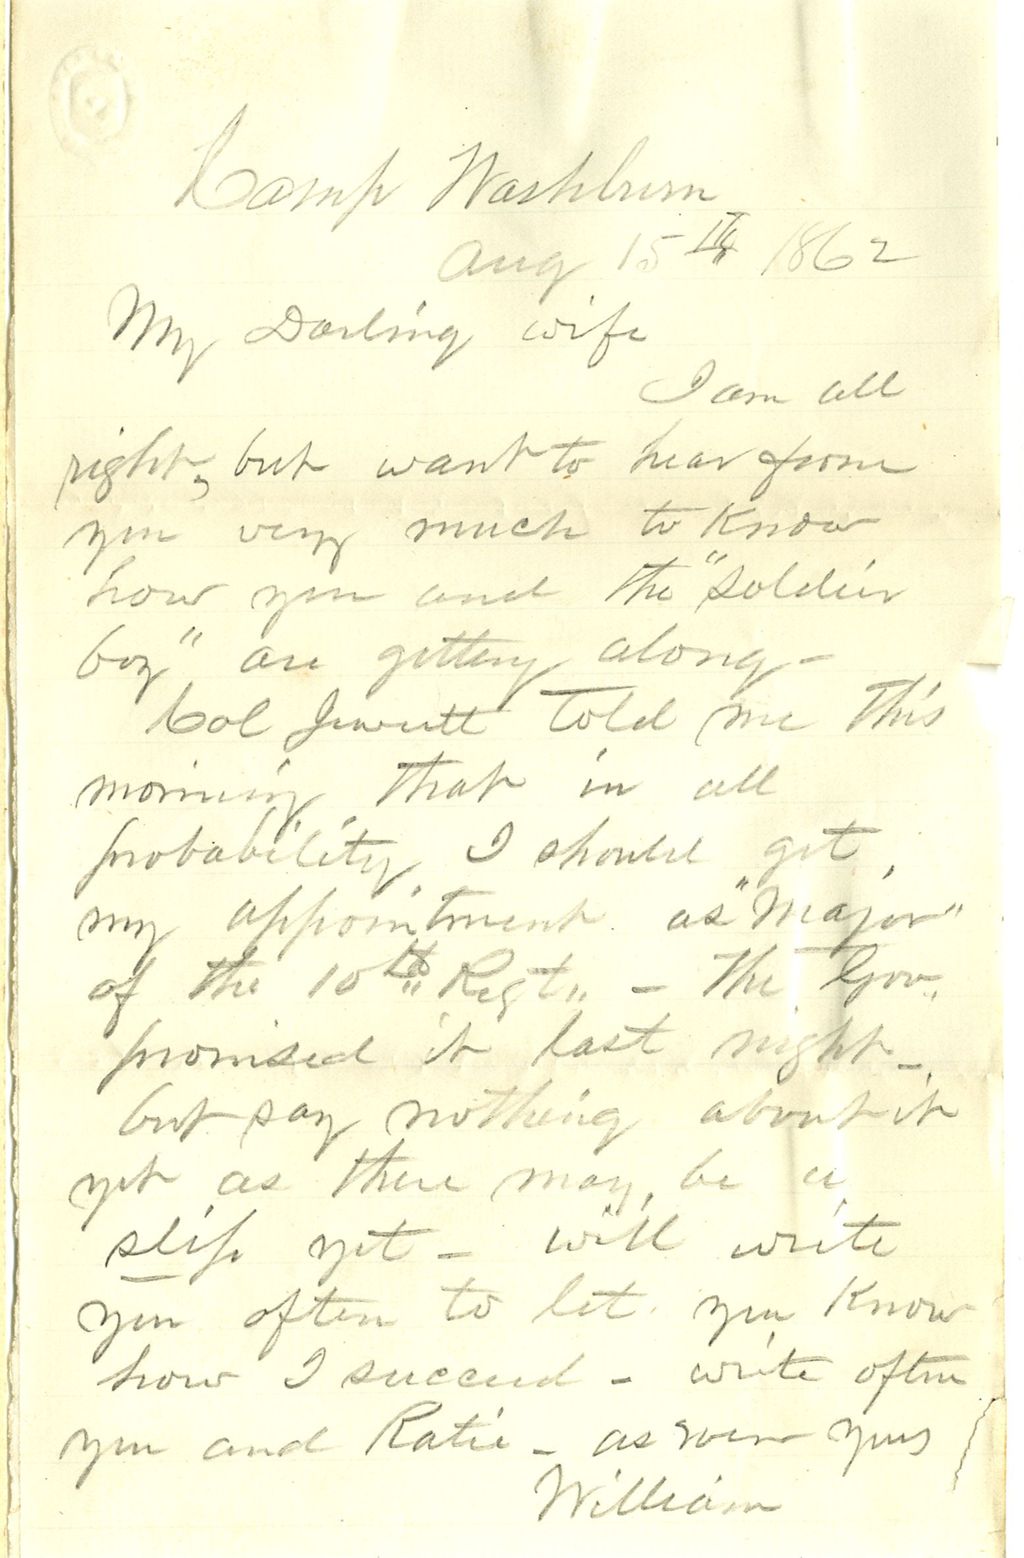 Camp Washburn
Aug 15th 1862
My Darling wife
I am all
right, but want to hear from
you very much to Know
how you and the "soldier
boy" are getting along -
Col Jewett told me this
morning that in all
probability I should get
my appointment as "Major"
of the 10th "Regt" - The Gov.
promised it last night -
but say nothing about it
yet as there may be a
slip yet - will write
you often to let you Know
how I succeed - write often
you and Katie - as ever yours
William